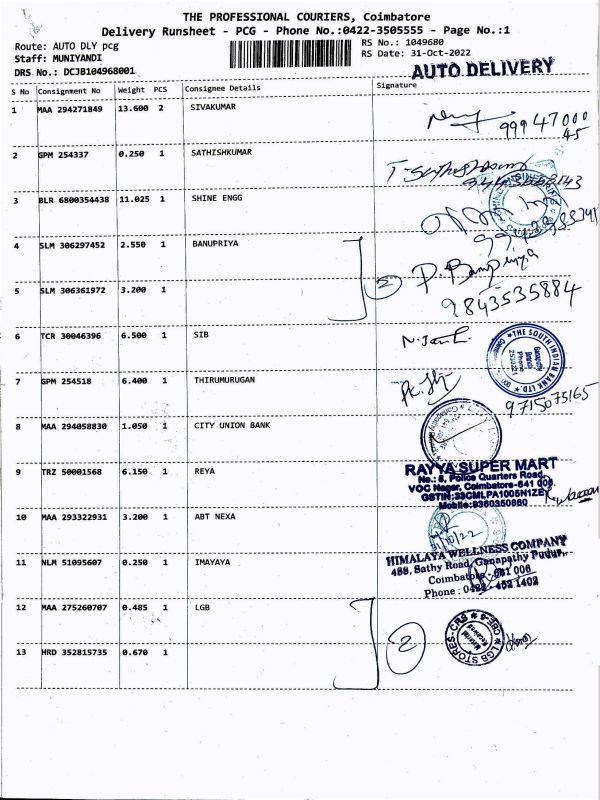 THE PROFESSIONAL COURIERS, Coimbatore
Delivery Runsheet - PCG - Phone No.:0422-3505555 - Page No.:1
Route: AUTO DLY pcg
RS No.: 1049680
Staff: MUNIYANDI
RS Date: 31-Oct-2022
DRS No.: DCJB104968001
AUTO DELIVERY
S No Consignment No Weight PCS Consignee Details Signature
1 MAA 294271849 13.600 2 SIVAKUMAR
99947000
45
2 GPM 254337 0.250 1 SATHISHKUMAR
3 BLR 6800354438 11.025 1 SHINE ENGG
4 SLM 306297452 2.550 1 BANUPRIYA
2 P. Banupriya
5 SLM 306361972 3.200 1
9843535884
6 TCR 30046396 6.500 1 SIB
THE SOUTH INDIAN BANK LTD.
7 GPM 254518 6.400 1 THIRUMURUGAN
9715075165
8 MAA 294058830 1.050 1 CITY UNION BANK
9 TRZ 50001568 6.150 1 REYA
RAYYA SUPER MART
No.: 8, Police Quarters Road,
VOC Nagar, Coimbatore-641 006.
GSTIN:33CMLPA1005N1ZE
Mobile:9360350860
10 MAA 293322931 3.200 1 ABT NEXA
31/10/22
11 NLM 51095607 0.250 1 IMAYAYA
HIMALAYA WELLNESS COMPANY
488, Sathy Road, Ganapathy Pudur,
Coimbatore - 641 006
Phone : 0422 - 452 1402
12 MAA 275260707 0.485 1 LGB
2
LGB STORES-CRS
Material Received
13 HRD 352815735 0.670 1